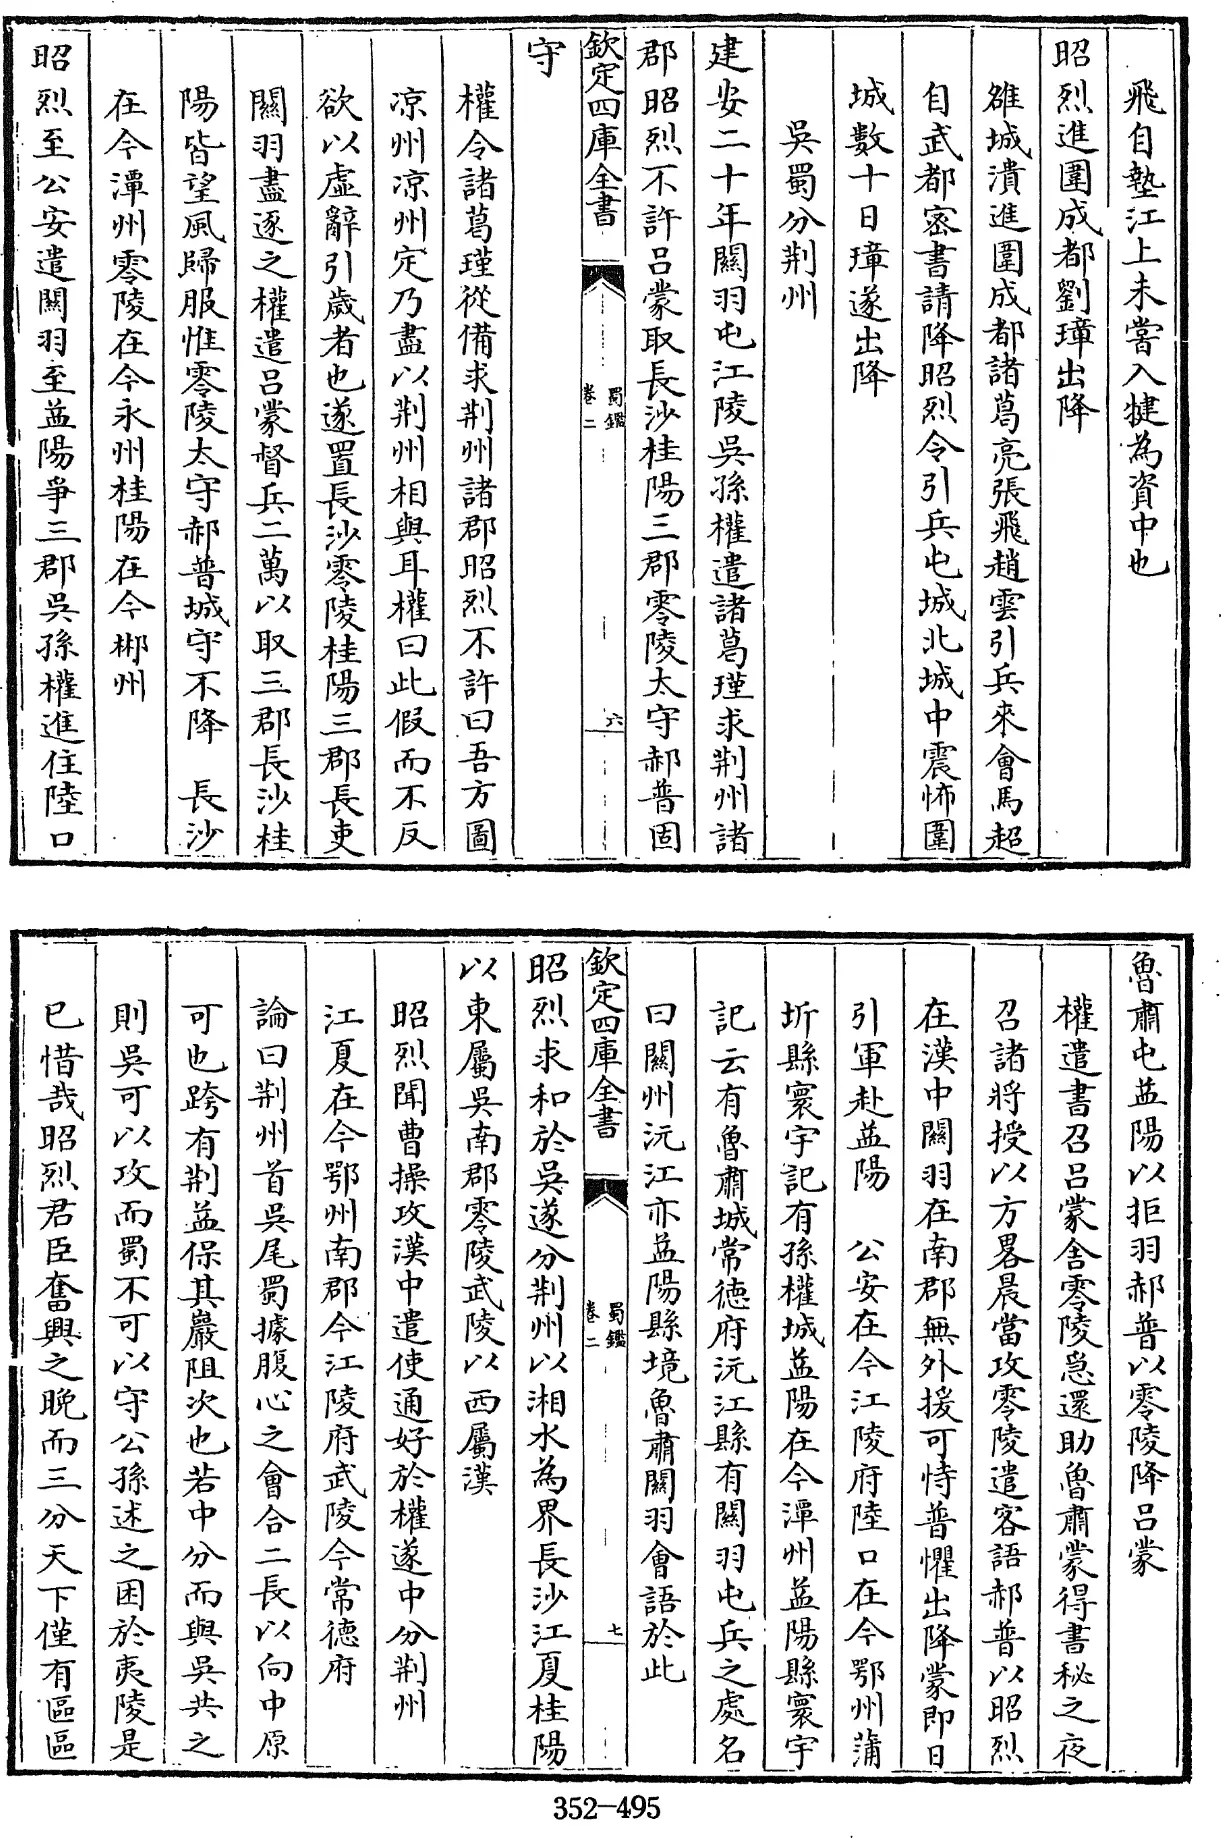 飛自墊江上未嘗入犍為資中也
昭烈進圍成都劉璋出降
雒城潰進圍成都諸葛亮張飛趙雲引兵來會馬超
自武都密書請降昭烈令引兵屯城北城中震怖圍
城數十日璋遂出降
吳蜀分荆州
建安二十年關羽屯江陵吳孫權遣諸葛瑾求荆州諸
郡昭烈不許呂蒙取長沙桂陽三郡零陵太守郝普固
欽定四庫全書
蜀鑑
卷二
六
守
權令諸葛瑾從備求荆州諸郡昭烈不許曰吾方圖
凉州凉州定乃盡以荆州相與耳權曰此假而不反
欲以虛辭引歲者也遂置長沙零陵桂陽三郡長吏
關羽盡逐之權遣呂蒙督兵二萬以取三郡長沙桂
陽皆望風歸服惟零陵太守郝普城守不降　長沙
在今潭州零陵在今永州桂陽在今郴州
昭烈至公安遣關羽至益陽爭三郡吳孫權進住陸口
魯肅屯益陽以拒羽郝普以零陵降呂蒙
權遣書召呂蒙舍零陵急還助魯肅蒙得書秘之夜
召諸將授以方畧晨當攻零陵遣客語郝普以昭烈
在漢中關羽在南郡無外援可恃普懼出降蒙即日
引軍赴益陽　公安在今江陵府陸口在今鄂州蒲
圻縣寰宇記有孫權城益陽在今潭州益陽縣寰宇
記云有魯肅城常德府沅江縣有關羽屯兵之處名
曰關州沅江亦益陽縣境魯肅關羽會語於此
欽定四庫全書
蜀鑑
卷二
七
昭烈求和於吳遂分荆州以湘水為界長沙江夏桂陽
以東屬吳南郡零陵武陵以西屬漢
昭烈聞曹操攻漢中遣使通好於權遂中分荆州
江夏在今鄂州南郡今江陵府武陵今常德府
論曰荆州首吳尾蜀據腹心之會合二長以向中原
可也跨有荆益保其巖阻次也若中分而與吳共之
則吳可以攻而蜀不可以守公孫述之困於夷陵是
已惜哉昭烈君臣奮興之晚而三分天下僅有區區
352-495